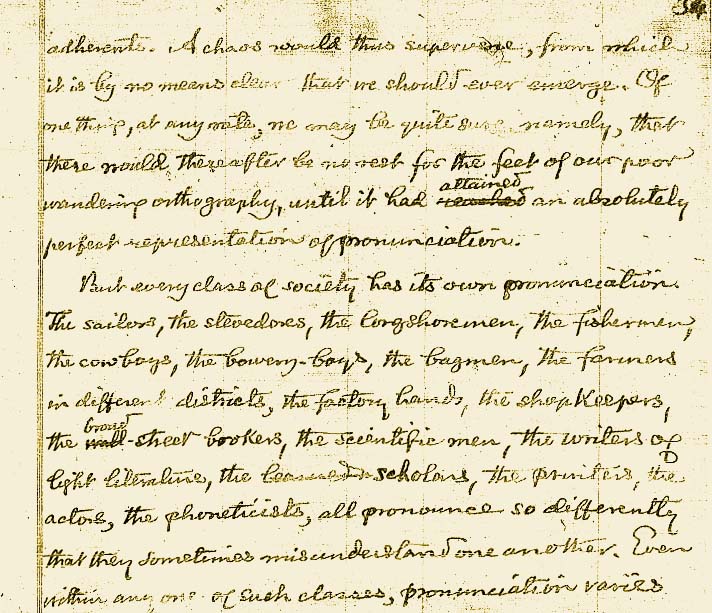 adherents. A chaos would thus supervene, from which
it is by no means clear that we should ever emerge. Of
one thing, at any rate, we may be quite sure, namely, that
there would thereafter be no rest for the feet of our poor
attained
wandering orthography, until it had reached an absolutely
perfect representation of pronunciation.
But every class of society has its own pronunciation.
The sailors, the stevedores, the longshoremen, the fishermen,
the cowboys, the bowery-boys, the bagmen, the farmers
in different districts, the factory hands, the shopkeepers,
broad
the wall-street brokers, the scientific men, the writers of
light literature, the learned scholars, the printers, the
actors, the phoneticists, all pronounce so differently
that they sometimes misunderstand one another. Even
within any one of such classes, pronunciation varies